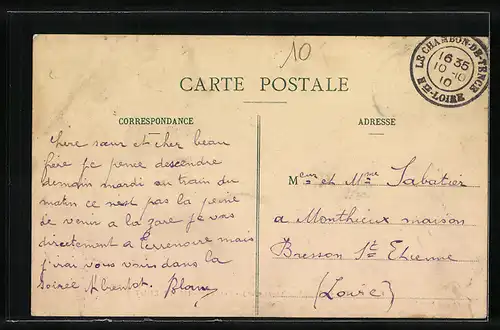 10
CARTE POSTALE
LE CHAMBON-DE-TENCE
16 35
10-10
10
Hte-LOIRE
CORRESPONDANCE
ADRESSE
Chère sœur et cher beau
frère je pense descendre
demain mardi au train du
matin ce nest pas la peine
de venir a la gare je vas
directement a Terrenoire mais
j'irai vous voir dans la
soirée A bientot.
Mem et Msr Sabatier
a Monthieux maison
Bresson St Etienne
(Loire)